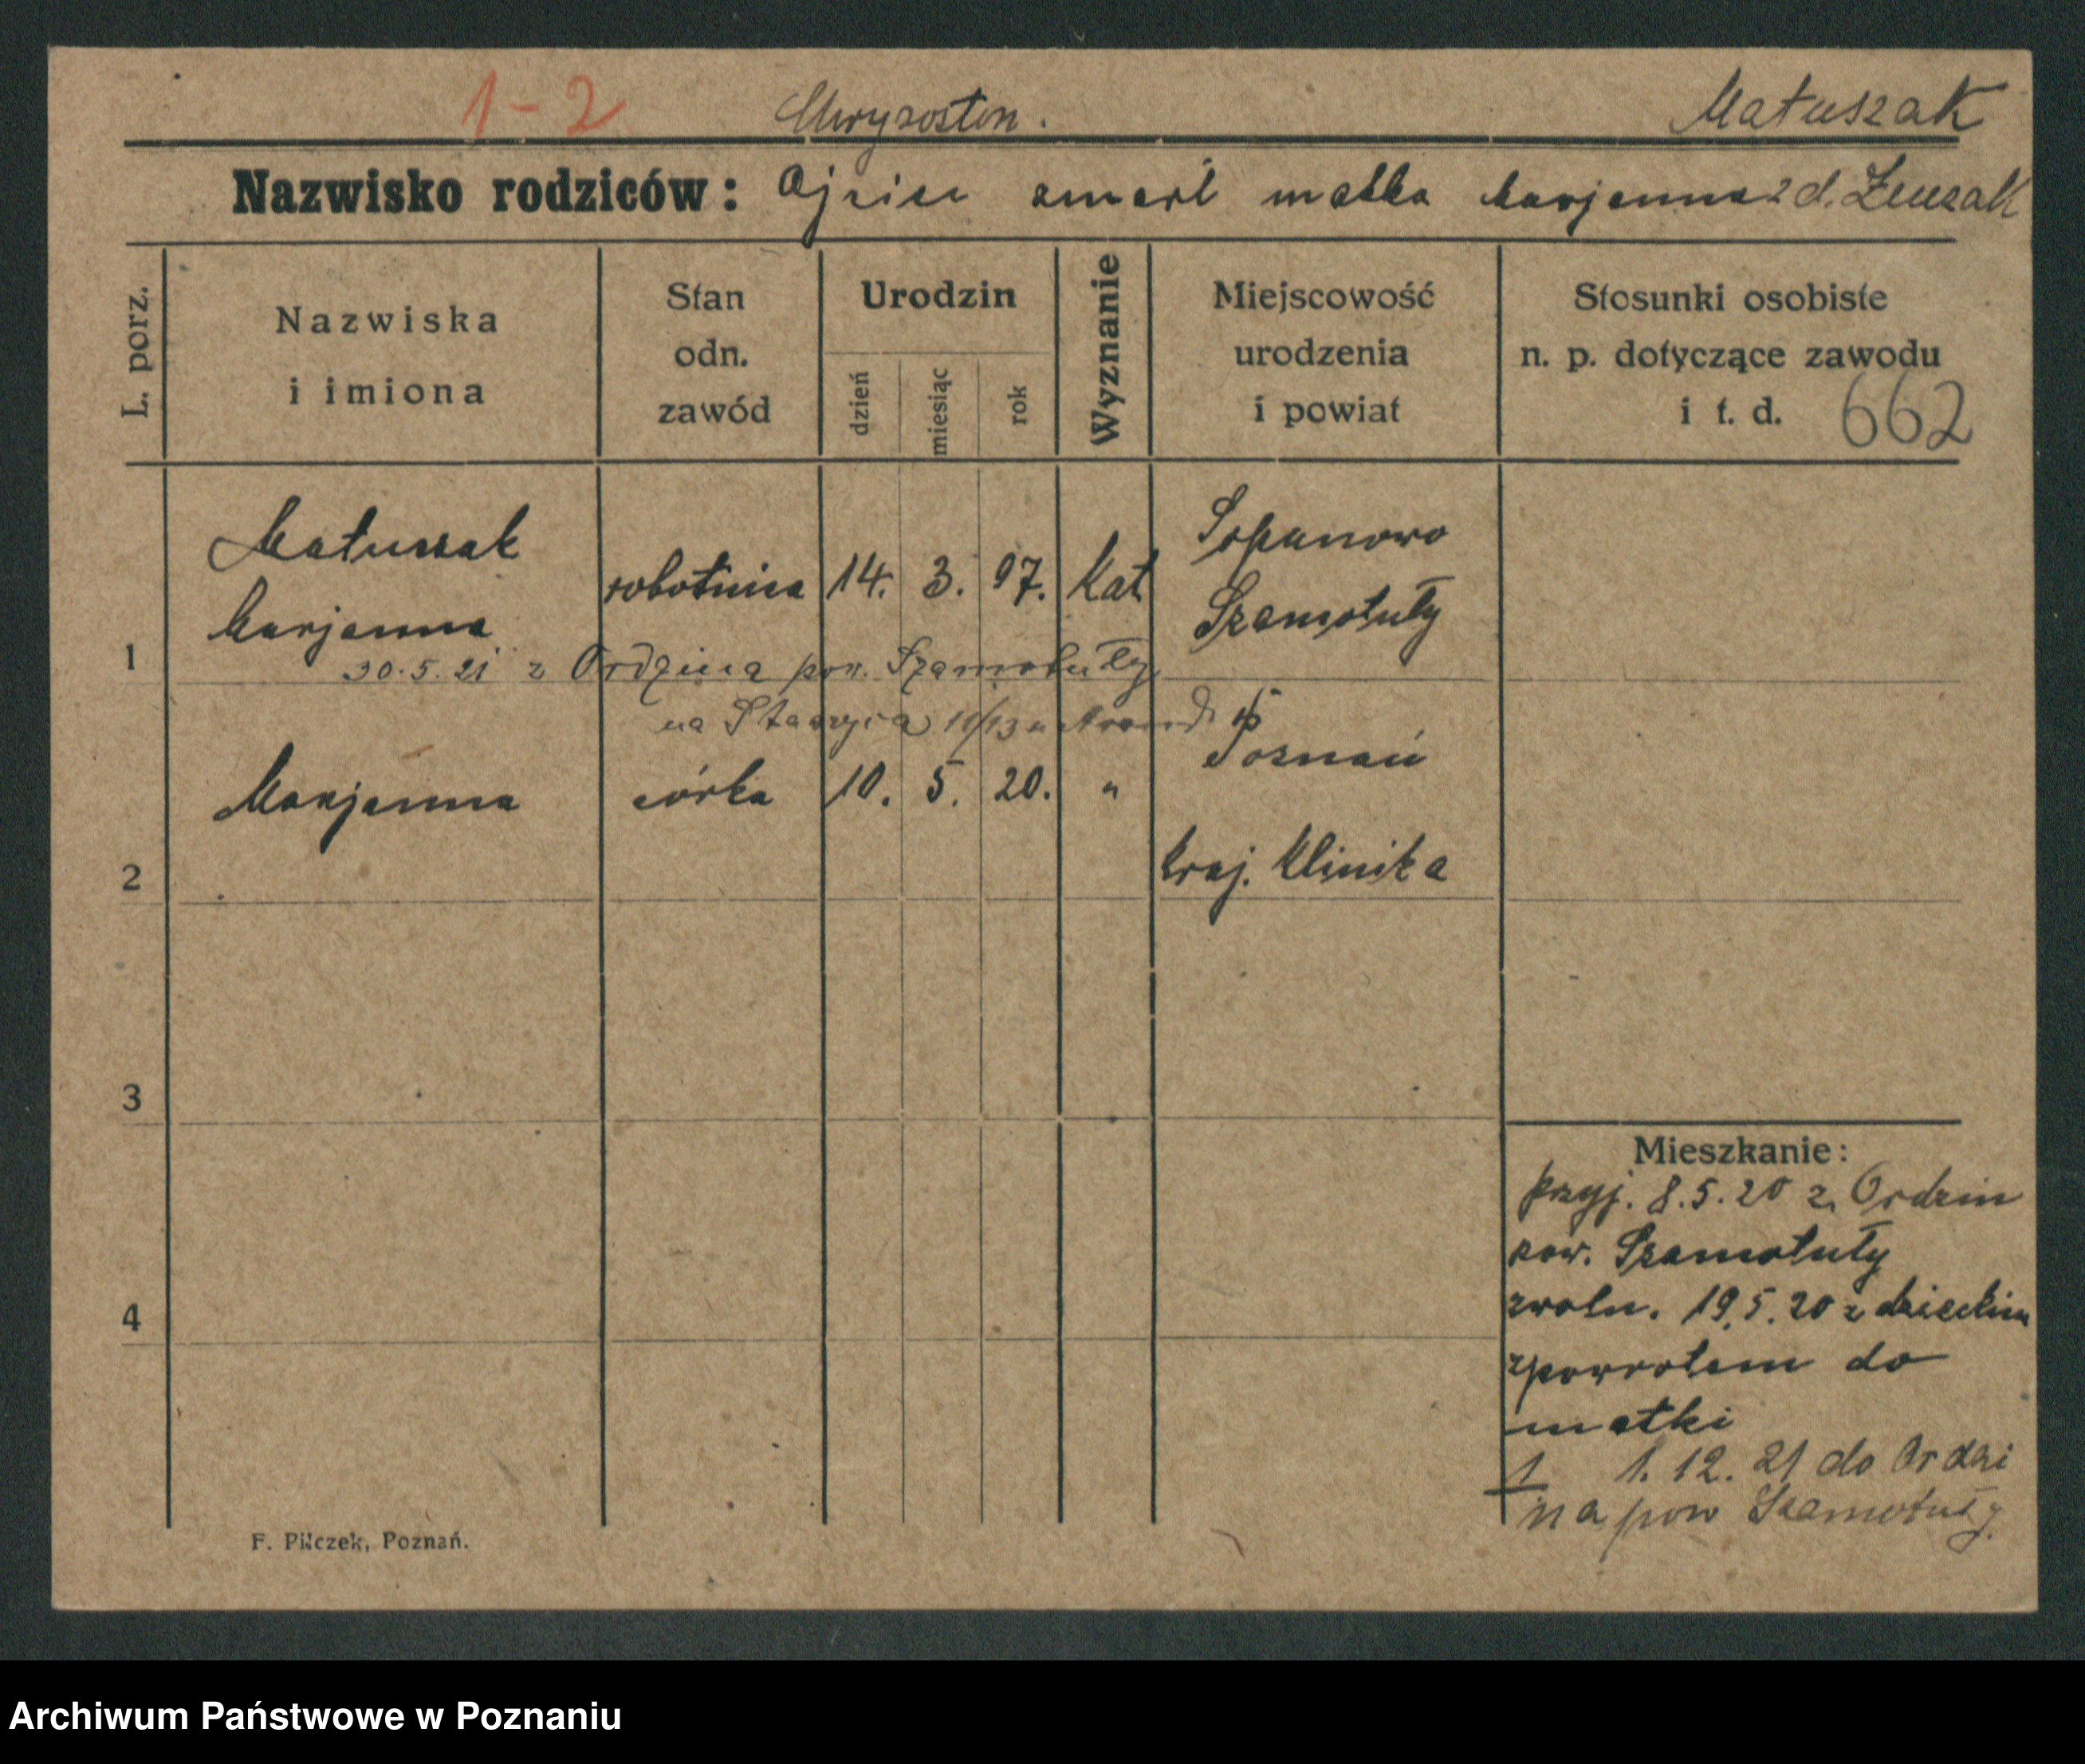 1-2 Chryzostom. Matuszak
Nazwisko rodziców: Ojciec zmarł matka Marjanna z d.
L. porz.
Nazwiska
i imiona
Stan
odn.
zawód
Urodzin
dzień
miesiąc
rok
Wyznanie
Miejscowość
urodzenia
i powiat
Stosunki osobiste
n. p. dotyczące zawodu
i t. d. 662
Matuszak
Marjanna
robotnica 14. 3. 97. Kat
Szamotuły
1
30.5.21 z Ordzina pow. Szamotuły
na Staszyca 11/13 u
Marjanna córka 10. 5. 20. "
Poznań
Kraj. Klinika
2
3
4
Mieszkanie:
przyj. 8.5.20 z Ordzin
pow. Szamotuły
zwoln. 19.5.20 z dzieckiem
zpowrotem do
matki
1 1.12.21 do Ordzi
na pow Szamotuły
F. Pilczek, Poznań.
Archiwum Państwowe w Poznaniu